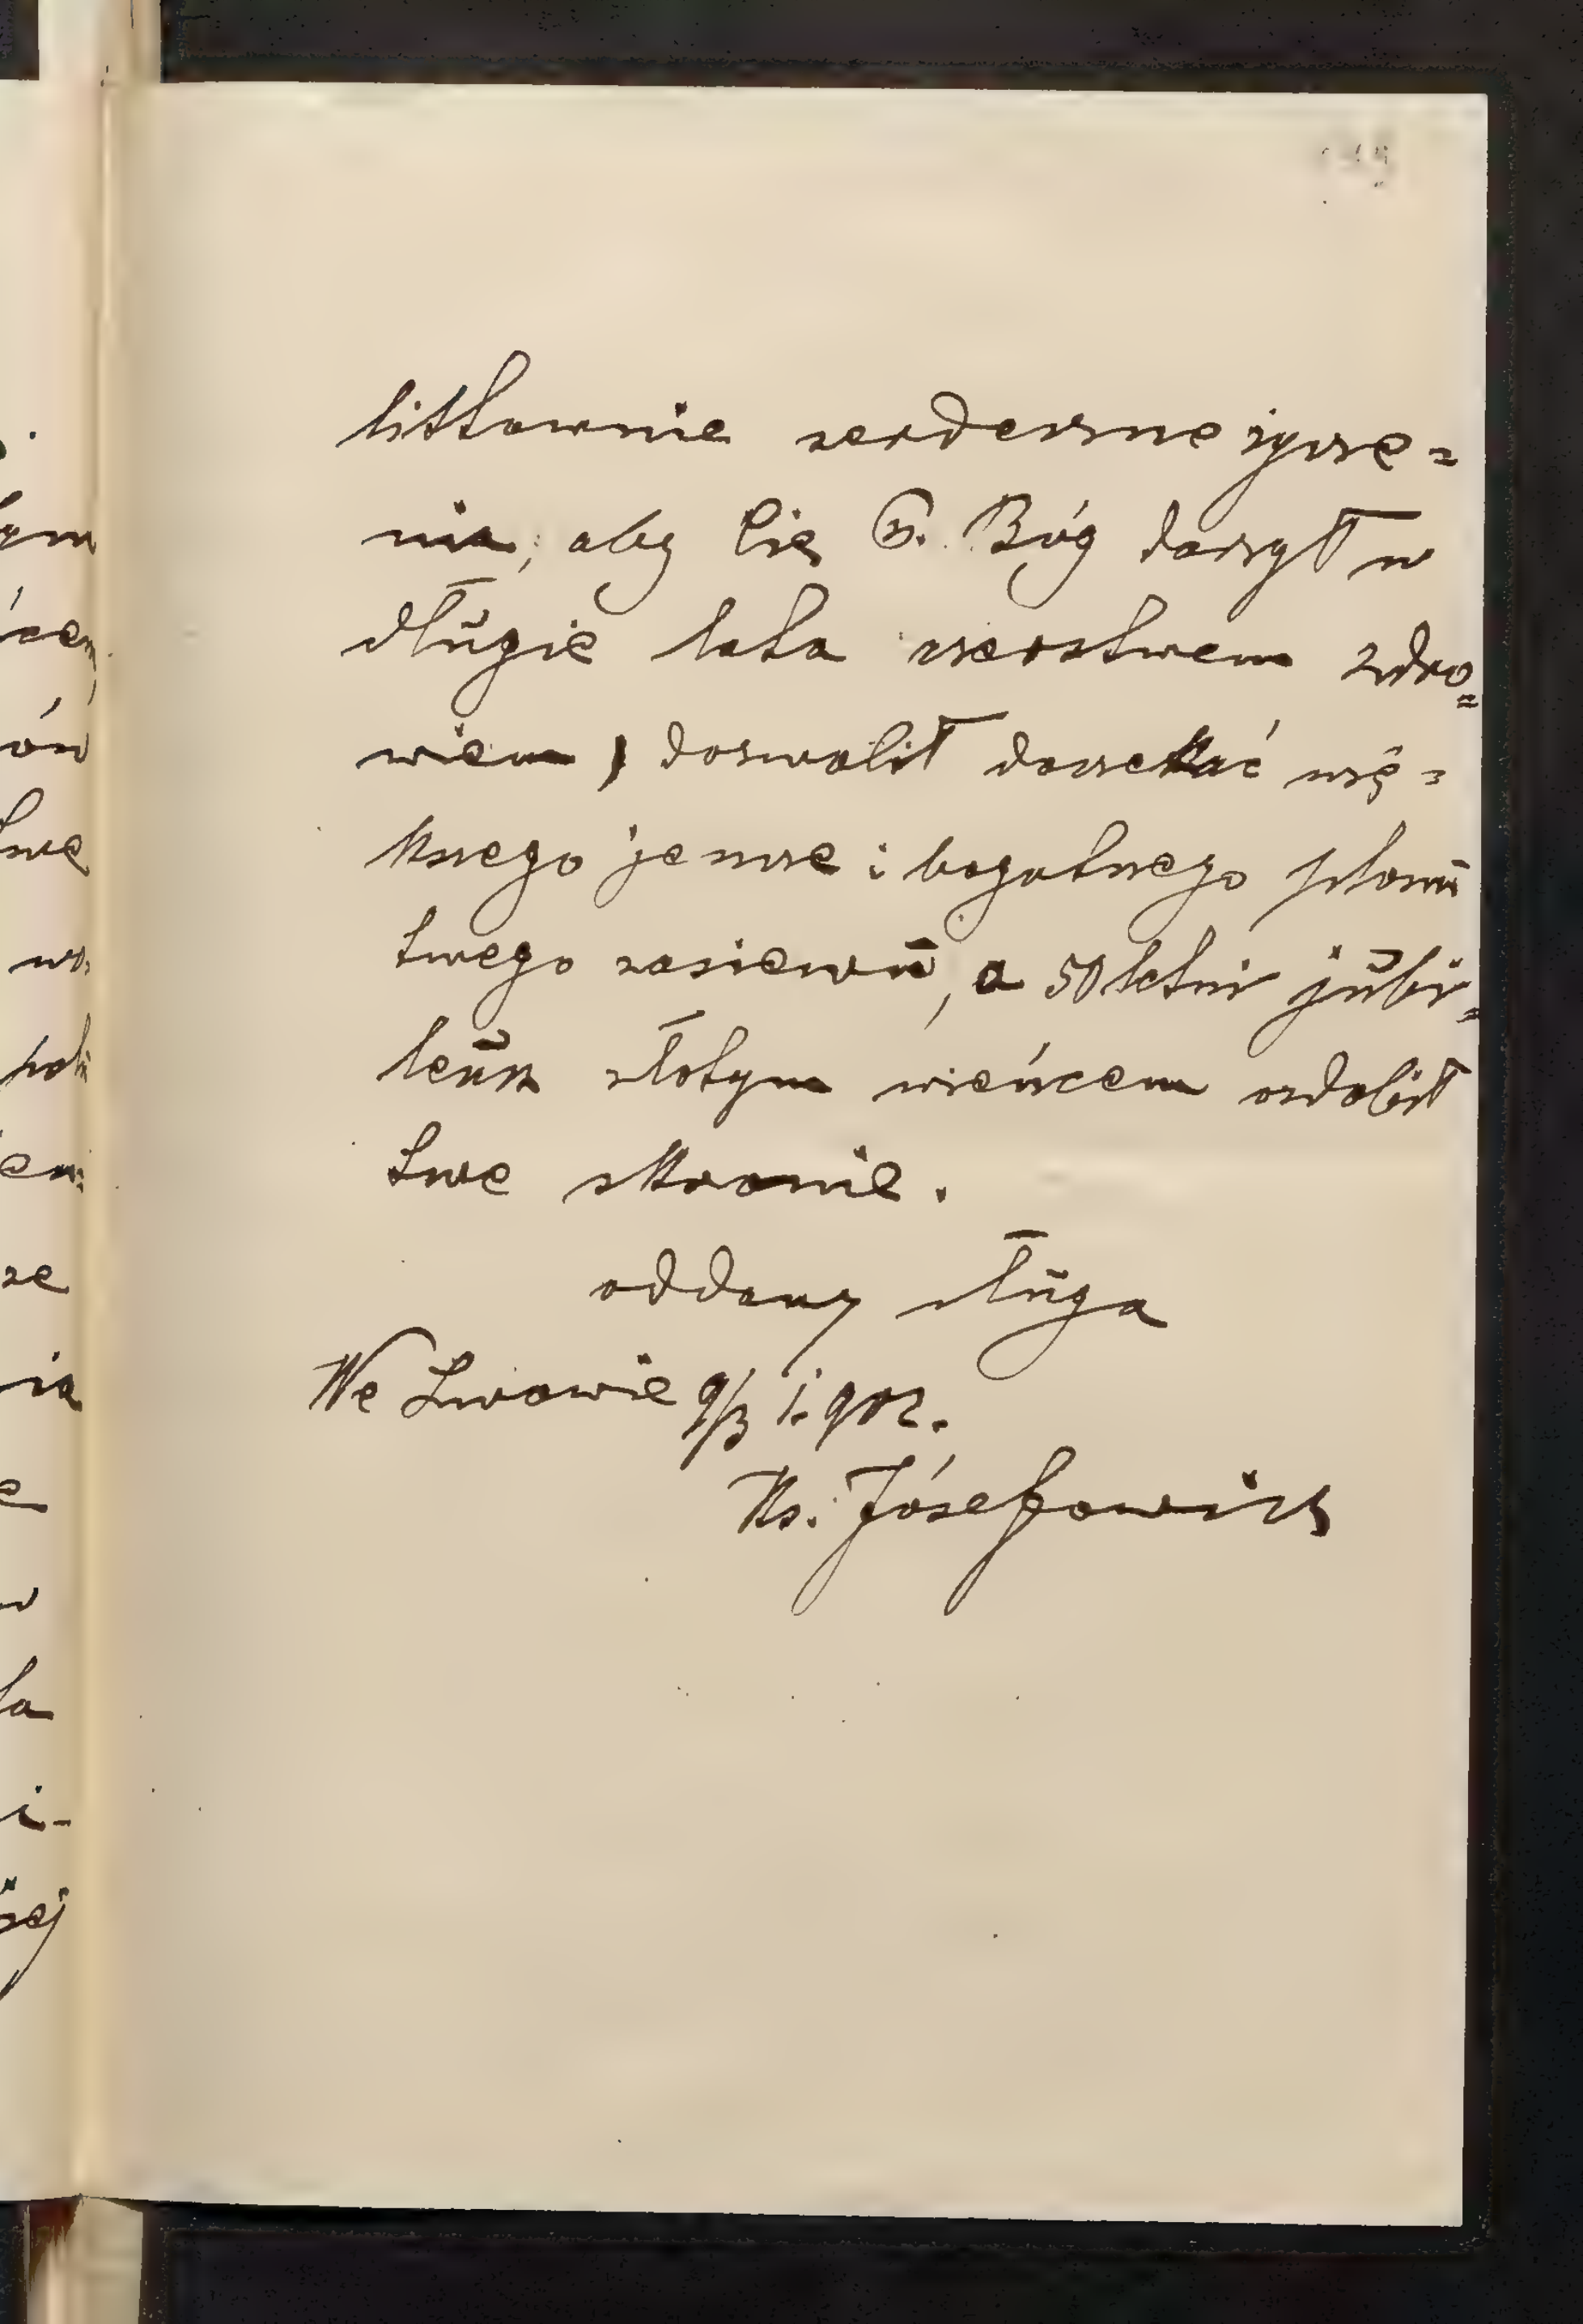 litłownie serdeczne życze=
nia, aby Cię P. Bóg darzył w
długie lata czerstwem zdro=
wiem, dozwolił doczekać wię=
kszego jeszcze i bogatszego plonu
twego zasiewu, a 50 letni jubi=
leusz złotym wieńcem ozdobił
twe skronie.
oddany sługa
We Lwowie 9/3 1.902.
Ks. Józefowicz